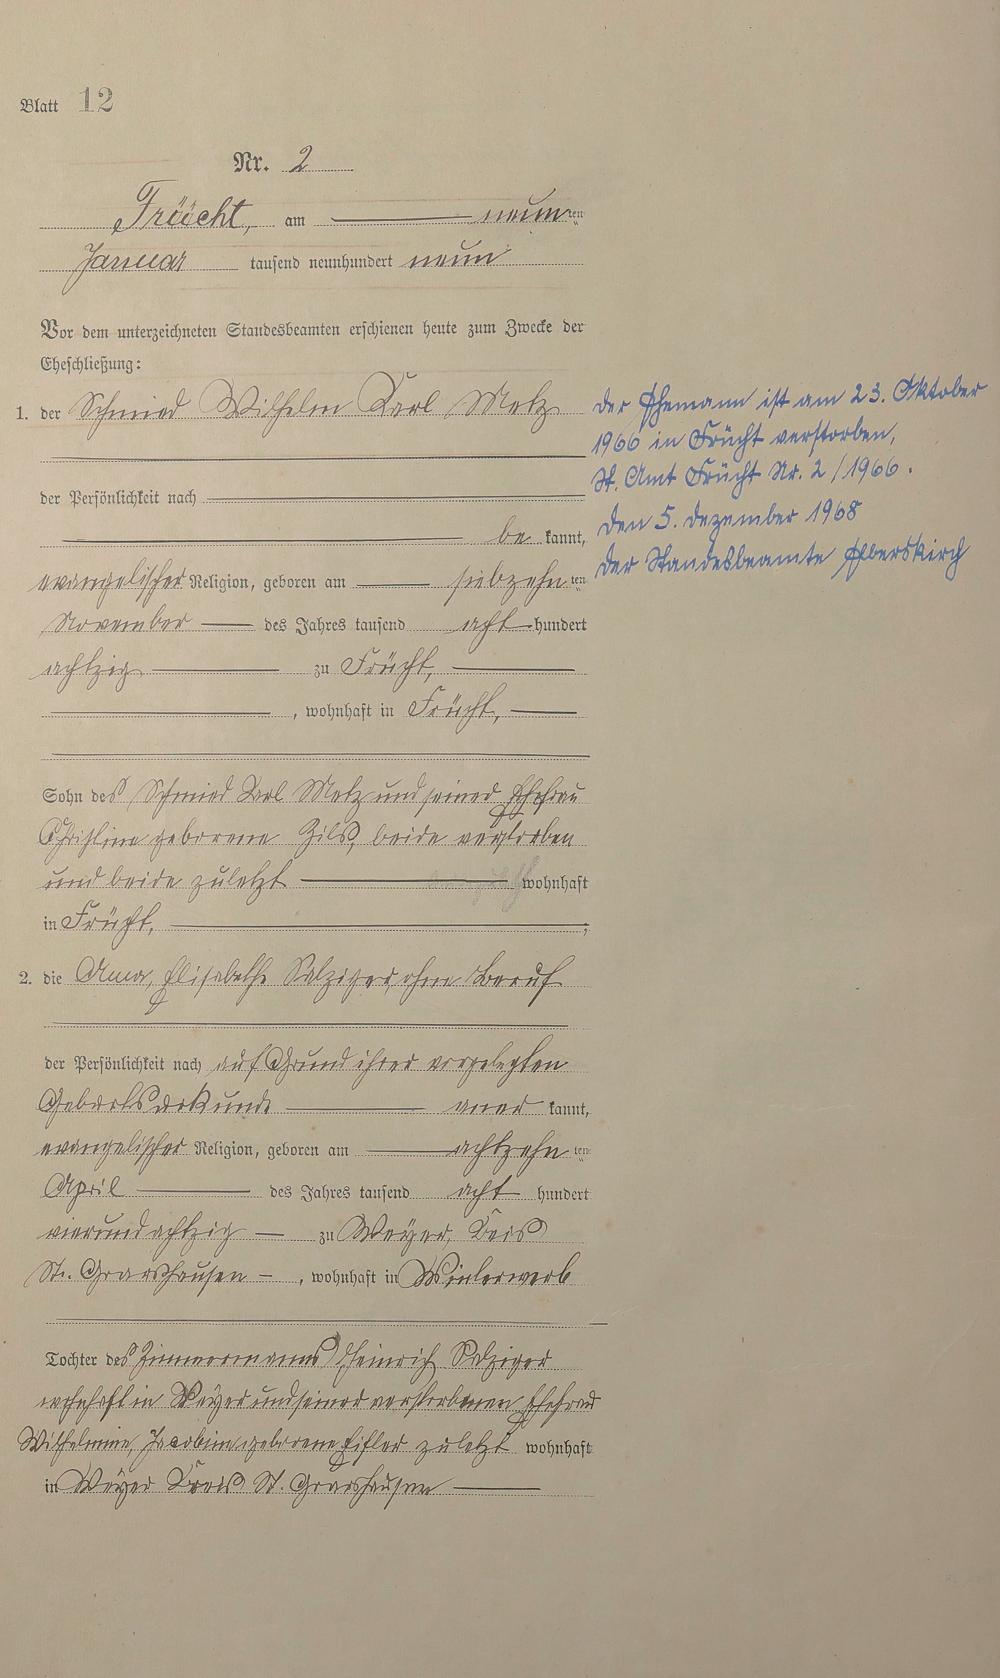 Blatt 12
Nr. 2
Früücht, am neunten
Januar tausend neunhundert neun
Vor dem unterzeichneten Standesbeamten erschienen heute zum Zwecke der
Eheschließung:
1. der Schmied Wilhelm Karl Metz
der Persönlichkeit nach
be kannt,
evangelischer Religion, geboren am siebzehn ten
November des Jahres tausend acht hundert
achtzig zu Frücht,
, wohnhaft in Frücht,
Sohn des Schmied Karl Metz und seiner Ehefrau
Christine geborene Gils, beide verstorben
und beide zuletzt wohnhaft
in Frücht, ;
2. die Anna, Elisabethe Salziger, ohne Beruf
der Persönlichkeit nach auf Grund ihrer vorgelegten
Geburtsurkunde aner kannt,
evangelischer Religion, geboren am achtzehn ten
April des Jahres tausend acht hundert
vierundachtzig zu Weyer, Kreis
St. Goarshausen , wohnhaft in Winterwerb
Tochter des Zimmermanns Heinrich Salziger
wohnhaft in Weyer und seiner verstorbenen Ehefrau
Wilhelmine, Jacobine geborene Eifler zuletzt wohnhaft
in Weyer Kreis St. Goarshausen
Der Ehemann ist am 23. Oktober
1966 in Frücht verstorben,
St. Amt Frücht Nr. 2 / 1966.
Den 5. Dezember 1968
Der Standesbeamte Eberskirch